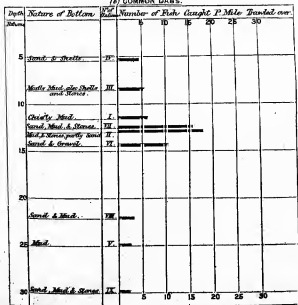 (a) COMMON DABS.
Depth Nature of Bottom Number of Fish Caught P Mile Trawled over.
5 10 15 20 25 30
5
Sand & Shells IV.
Muddy Mud, also Shells III
and Stones.
10
Chiefly Mud. I.
Sand, Mud, & Stones. VII
Mud, & Stones, partly Sand II
Sand & Gravel. VI.
15
20
Sand & Mud. VIII.
25
Mud. V.
30
Sand, Mud & Stones IX.
5 10 15 20 25 30